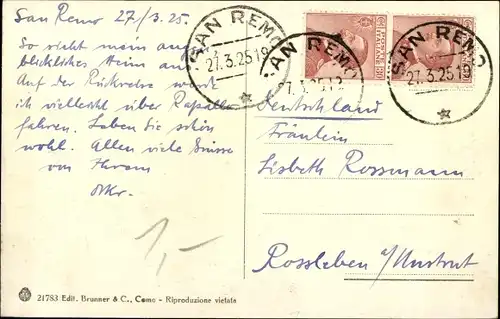 San Remo 27/3.25.
So sieht mein augen-
blickliches Heim aus.
Auf der Rückreise werde
ich vielleicht über Rapallo
fahren. Leben Sie schön
wohl. Allen viele Grüsse
von Ihrem
SAN REMO
27.3.25 19
SAN REMO
7.3.25 19
SAN REMO
27.3.25 19
Deutschland
Fräulein
Lisbeth Rossmann
Rossleben a/Unstrut
1,-
21783 Edit. Brunner & C., Como - Riproduzione vietata